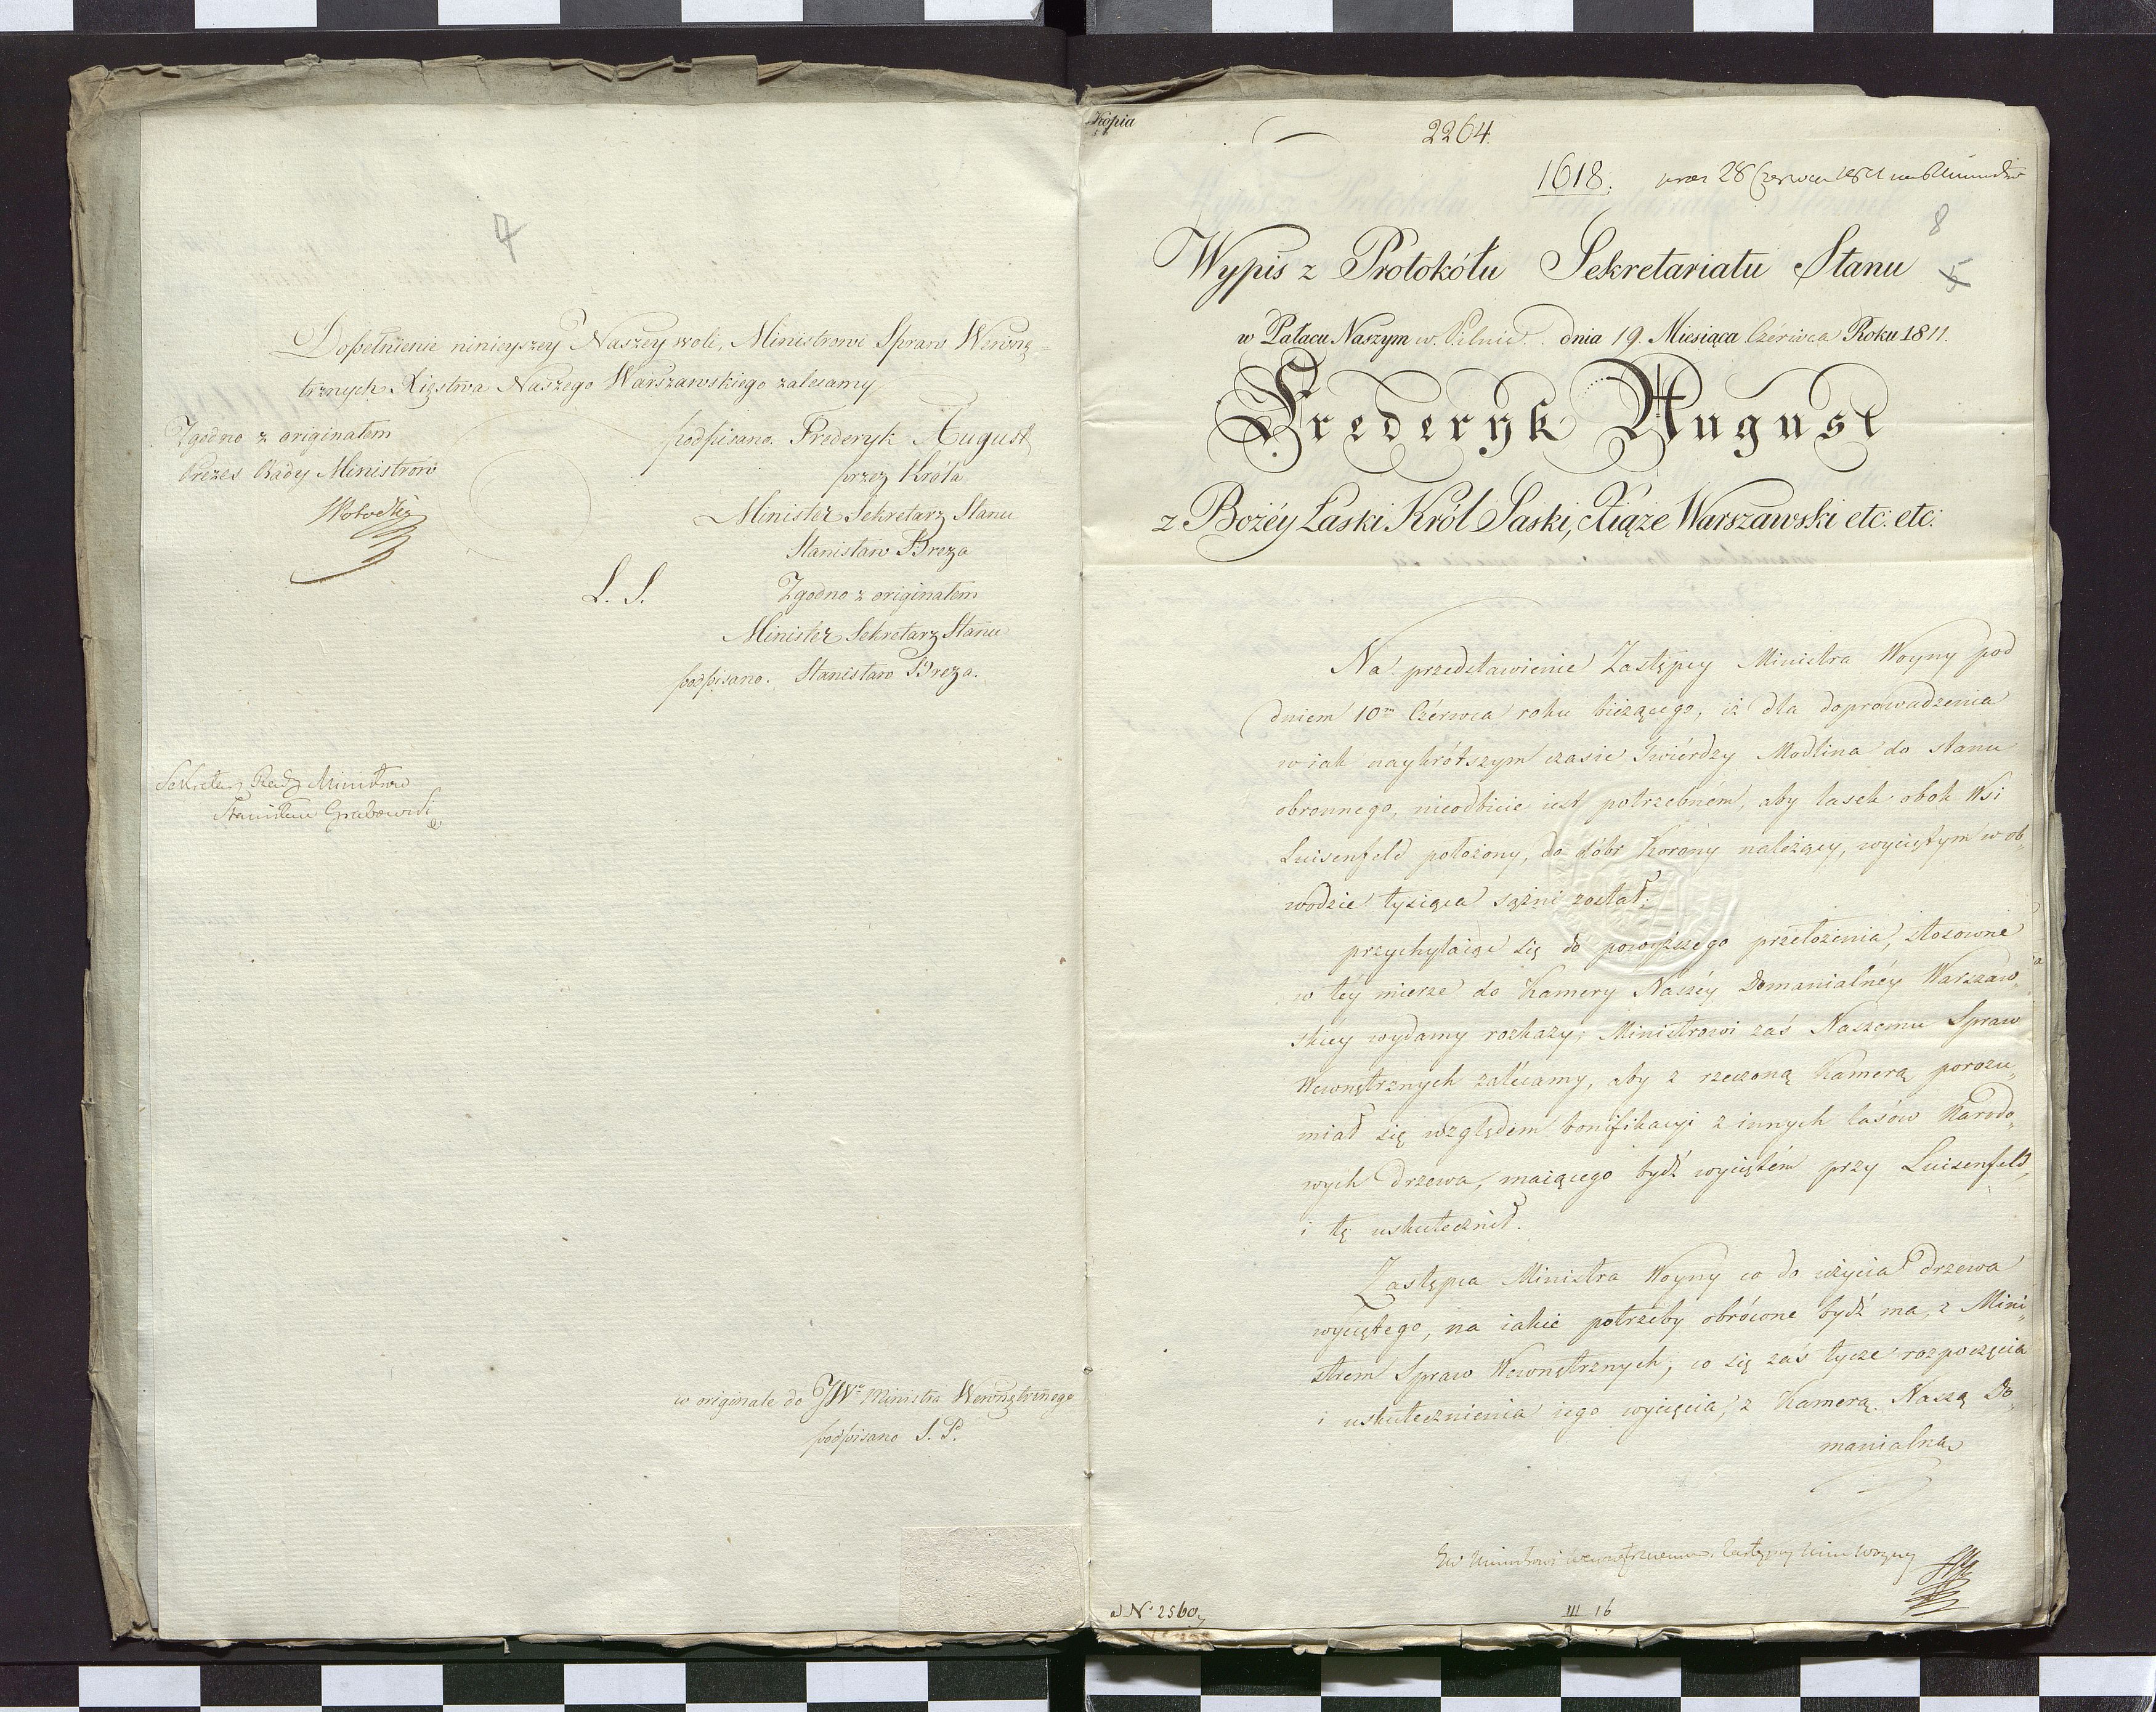 4
Dopełnienie ninieyszey Naszey woli, Ministrowi Spraw Wewnę-
trznych Xięstwa Naszego Warszawskiego zalecamy
Zgodno z originałem
Prezes Rady Ministrów
podpisano. Frederyk August
przez Króla
Minister Sekretarz Stanu
Stanisław Breza
L. S.
Zgodno z originałem
Minister Sekretarz Stanu
podpisano. Stanisław Breza.
Sekretarz Rady Ministrów
Stanisław Grabowski
w originale do JWo Ministra Wewnętrznego
podpisano S. P.
Kopia
2264.
1618.
28 Czerwca 1811
8
5
Wypis z Protokółu Sekretariatu Stanu
w Pałacu Naszym w. Pilnic. dnia 19. Miesiąca Czérwca Roku 1811.
Frederyk August
z Bożéy Łaski Król Saski, Xiąże Warszawski etc. etc.
Na przedstawienie Zastępcy Ministra Woyny pod
dniem 10m Czérwca roku bieżącego, iż dla doprowadzenia
w iak naykrótszym czasie Twiérdzy Modlina do stanu
obronnego, nieodbicie iest potrzebném, aby lasek obok Wsi
Luisenfeld położony, do dóbr Korony należący, wyciętym w ob„
wodzie tysiąca sążni został;
przychylaiąc się do powyższego przełożenia, stosowne
w téy mierze do Kamery Naszéy Domanialnéy Warszaw„
skiey wydamy rozkazy; Ministrowi zaś Naszemu Spraw
Wewnętrznych zalécamy, aby z rzeczoną Kamerą porozu„
miał się względem bonifikacyi z innych lasów Narodo„
wych drzewa, maiącego bydź wyciętém przy Luisenfeld,
i tę uskutecznił.
Zastępca Ministra Woyny co do użycia drzewa
wyciętego, na iakie potrzeby obrócone bydź ma, z Mini„
strem Spraw Wewnętrznych; co się zaś tycze rozpoczęcia
i uskutecznienia iego wycięcia, z Kamerą Naszą Do„
manialną
Ministrowi Wewnętrznemu, Zastępcy Min Woyny
ad No 2560
III 16